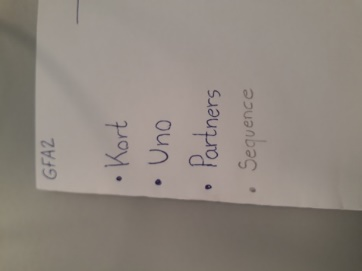 GFA2
• Kort
• Uno
• Partners
• Sequence